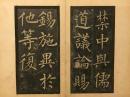 禁中與儒
道議論賜
錫施異於
他等復